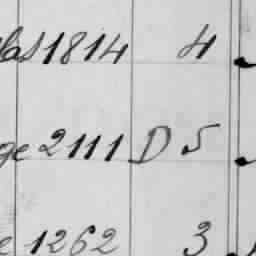 1814 4
ge 2111 D 5
e 1262 3